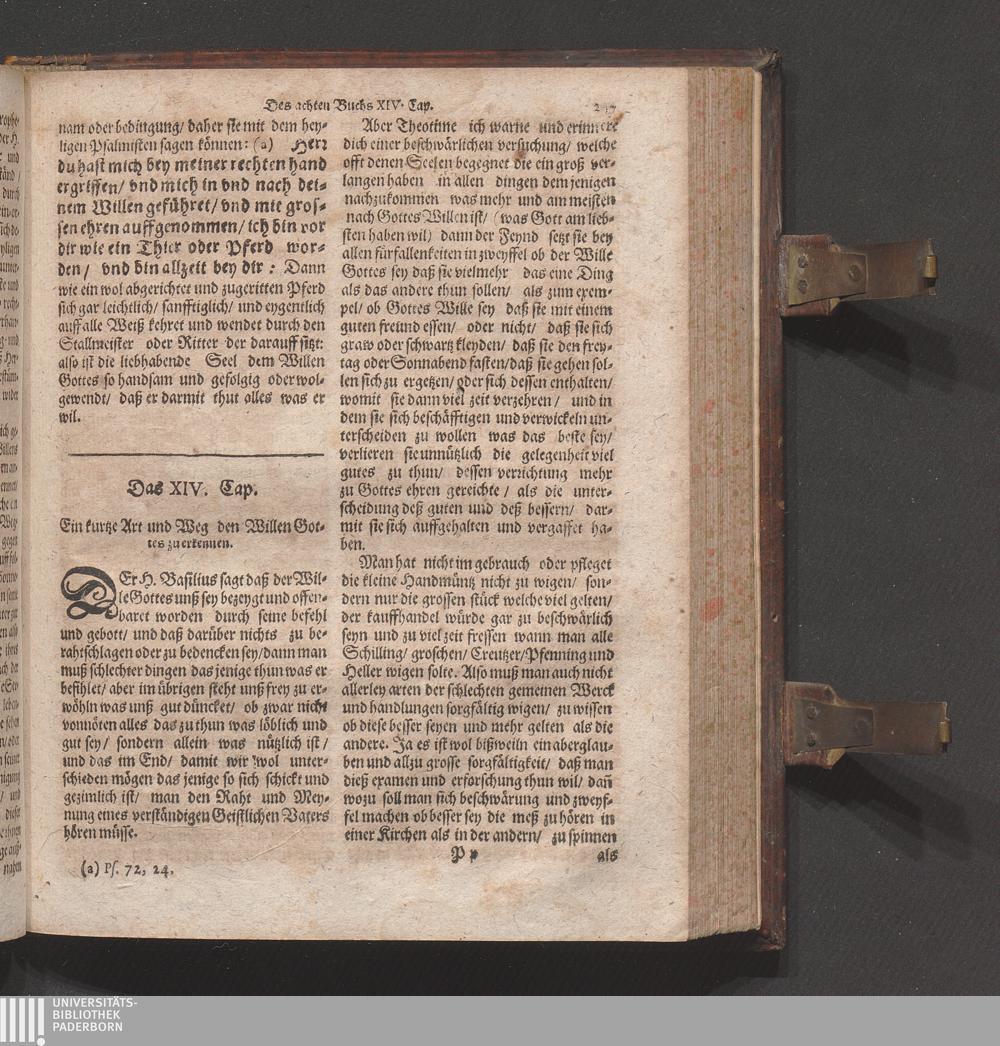 Des achten Buchs XIV. Cap.
nam oder bedingung/ daher sie mit dem hey-
ligen Psalmisten sagen können: (a) Herr
du hast mich bey meiner rechten hand
ergriffen/ vnd mich in vnd nach dei-
nem Willen geführet/ vnd mit gros-
sen ehren auffgenommen/ ich bin vor
dir wie ein Thier oder Pferd wor-
den/ vnd bin allzeit bey dir: Dann
wie ein wol abgerichtet und zugeritten Pferd
sich gar leichtlich/ sanfftiglich/ und eygentlich
auff alle Weiß kehret und wendet durch den
Stallmeister oder Ritter der darauff sitzt:
also ist die liebhabende Seel dem Willen
Gottes so handsam und gefolgig oder wol-
gewendt/ daß er darmit thut alles was er
wil.
Das XIV. Cap.
Ein kurtze Art und Weg den Willen Got-
tes zu erkennen.
DEr H. Basilius sagt daß der Wil-
le Gottes unß sey bezeygt und offen-
baret worden durch seine befehl
und gebott/ und daß darüber nichts zu be-
rahtschlagen oder zu bedencken sey/ dann man
muß schlechter dingen das jenige thun was er
befihlet/ aber im übrigen steht unß frey zu er-
wöhln was unß gut düncket/ ob zwar nicht
vonnöten alles das zu thun was löblich und
gut sey/ sondern allein was nützlich ist/
und das im End/ damit wir wol unter-
schieden mögen das jenige so sich schickt und
gezimlich ist/ man den Raht und Mey-
nung eines verständigen Geistlichen Vaters
hören müsse.
(a) Ps. 72, 24.
Aber Theotime ich warne und erinnere
dich einer beschwärlichen versuchung/ welche
offt denen Seelen begegnet die ein groß ver-
langen haben in allen dingen dem jenigen
nachzukommen was mehr und am meisten
nach Gottes Willen ist/ (was Gott am lieb-
sten haben wil) dann der Feynd setzt sie bey
allen fürfallenkeiten in zweyffel ob der Wille
Gottes sey daß sie vielmehr das eine Ding
als das andere thun sollen/ als zum exem-
pel/ ob Gottes Wille sey daß sie mit einem
guten freund essen/ oder nicht/ daß sie sich
graw oder schwartz kleyden/ daß sie den frey-
tag oder Sonnabend fasten/ daß sie gehen sol-
len sich zu ergetzen/ oder sich dessen enthalten/
womit sie dann viel zeit verzehren/ und in
dem sie sich beschäfftigen und verwickeln un-
terscheiden zu wollen was das beste sey/
verlieren sie unnützlich die gelegenheit viel
gutes zu thun/ dessen verrichtung mehr
zu Gottes ehren gereichte/ als die unter-
scheidung deß guten und deß bessern/ dar-
mit sie sich auffgehalten und vergaffet ha-
ben.
Man hat nicht im gebrauch oder pfleget
die kleine Handmüntz nicht zu wigen/ son-
dern nur die grossen stück welche viel gelten/
der kauffhandel würde gar zu beschwärlich
seyn und zu viel zeit fressen wann man alle
Schilling/ groschen/ Creutzer/ Pfenning und
Heller wigen solte. Also muß man auch nicht
allerley arten der schlechten gemeinen Werck
und handlungen sorgfältig wigen/ zu wissen
ob diese besser seyen und mehr gelten als die
andere. Ja es ist wol bißweiln ein aberglau-
ben und allzu grosse sorgfältigkeit/ daß man
dieß examen und erforschung thun wil/ dañ
wozu soll man sich beschwärung und zweyf-
fel machen ob besser sey die meß zu hören in
einer Kirchen als in der andern/ zu spinnen
als
UNIVERSITÄTS-
BIBLIOTHEK
PADERBORN